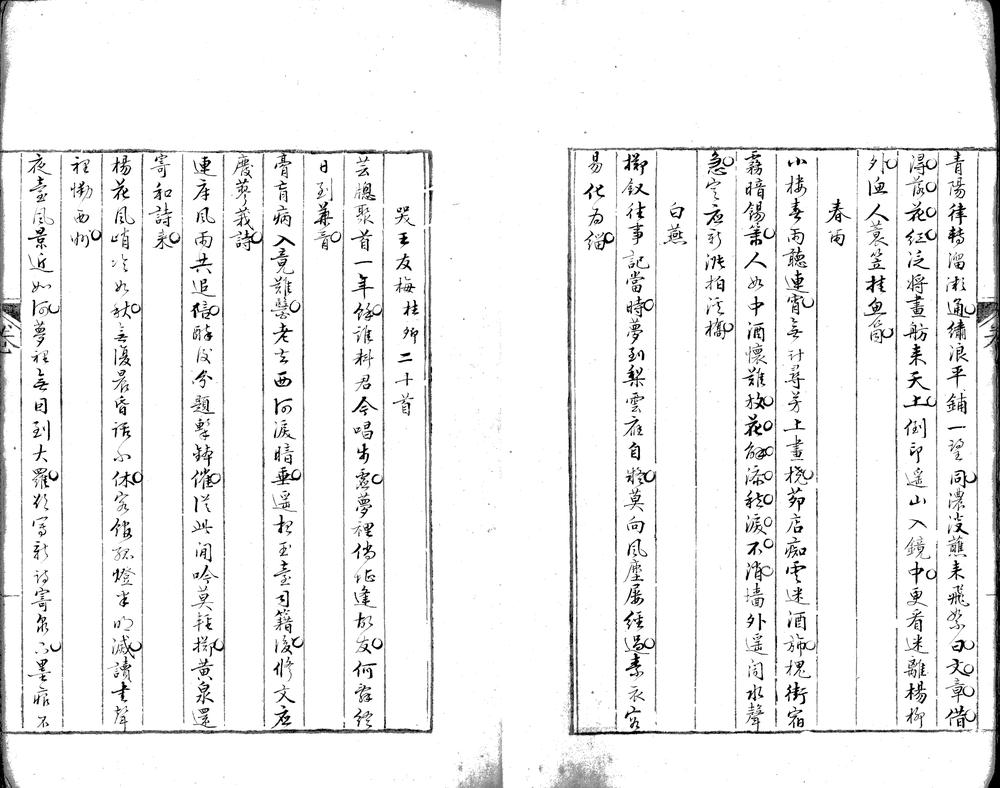 青陽律轉溜澌通繡浪平鋪一望同濃淡蘸來飛絮白文章借
得落花紅泛將畫舫來天上倒印遙山入鏡中更看迷離楊柳
外漁人蓑笠挂魚筒
春雨
小樓春雨聽連宵無計尋芳上畫橈茆店痴雲迷酒旆槐街宿
霧暗錫簫人如中酒懷難放花解添愁淚不消墻外遙聞水聲
急定應新漲拍溪橋
白燕
擲釵往事記當時夢到梨雲应自疑莫向風塵屢經過素衣容
易化為緇
哭王友梅桂卿二十首
芸牕聚首一年餘誰料君今唱步虛夢裡倘征逢故友何辭終
日到華胥
膏肓病入竟難醫老去西河淚暗垂遥想玉臺司籍後修文应
廢蓼莪詩
連床風雨共追陪醉後分題擊鉢催從此閒吟莫輕擲黃泉還
寄和詩來
楊花風峭冷如秋無復晨昏話不休客館孤燈半明滅讀書聲
裡慟西州
夜臺風景近如何夢裡無因到大羅欲寫新詩寄泉 墨痕不